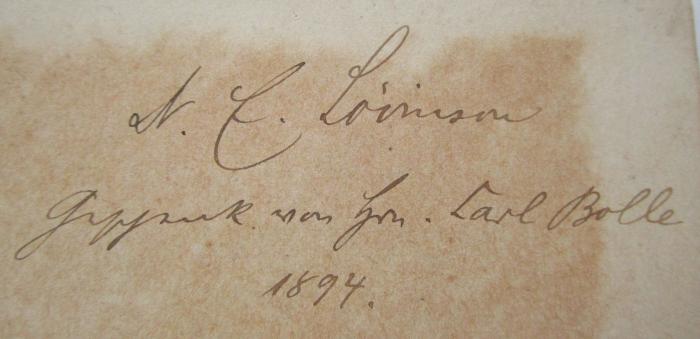 N. E. Lövinson
Geschenk von Hrn. Carl Bolle
1894.